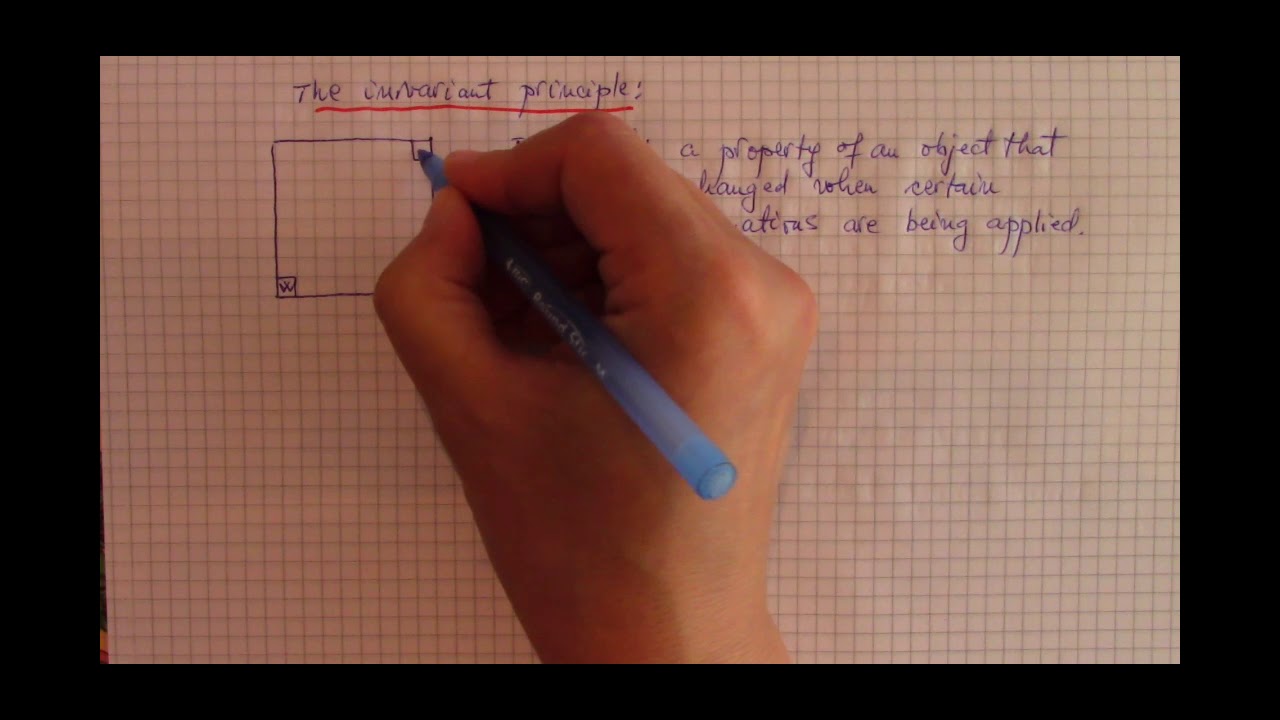 The invariant principle:
a property of an object that
hanged when certain
ations are being applied.
W
Round Stic M